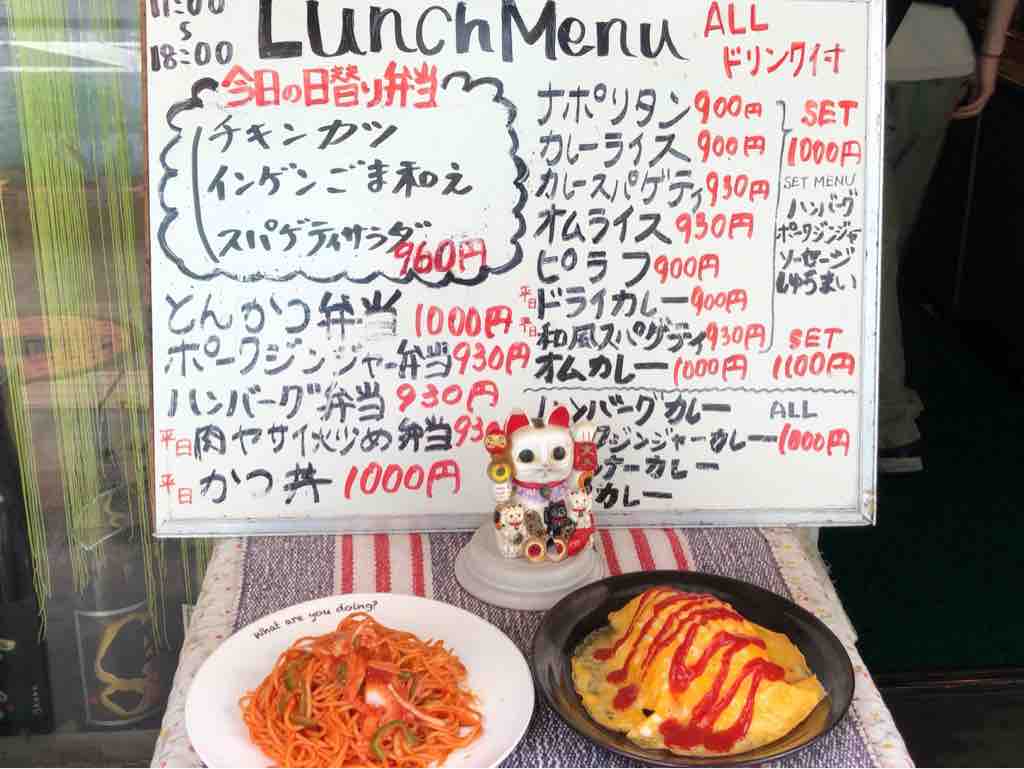 11:00
18:00
Lunch Menu
ALL
ドリンク付
今日の日替り弁当
チキンカツ
インゲンごま和え
スパゲティサラダ
960円
とんかつ弁当 1000円
ポークジンジャー弁当 930円
ハンバーグ弁当 930円
平日 肉ヤサイ火少め弁当 930
平日 かつ丼 1000円
ナポリタン 900円
カレーライス 900円
カレースパゲティ 930円
オムライス 930円
ピラフ 900円
平日 ドライカレー 900円
平日 和風スパゲティ 930円
オムカレー 1000円
SET
1000円
SET MENU
ハンバーグ
ポークジンジャー
ソーセージ
しゅうまい
SET
1100円
ハンバーグカレー ALL
ジンジャーカレー 1000円
カレー
カレー
What are you doing?